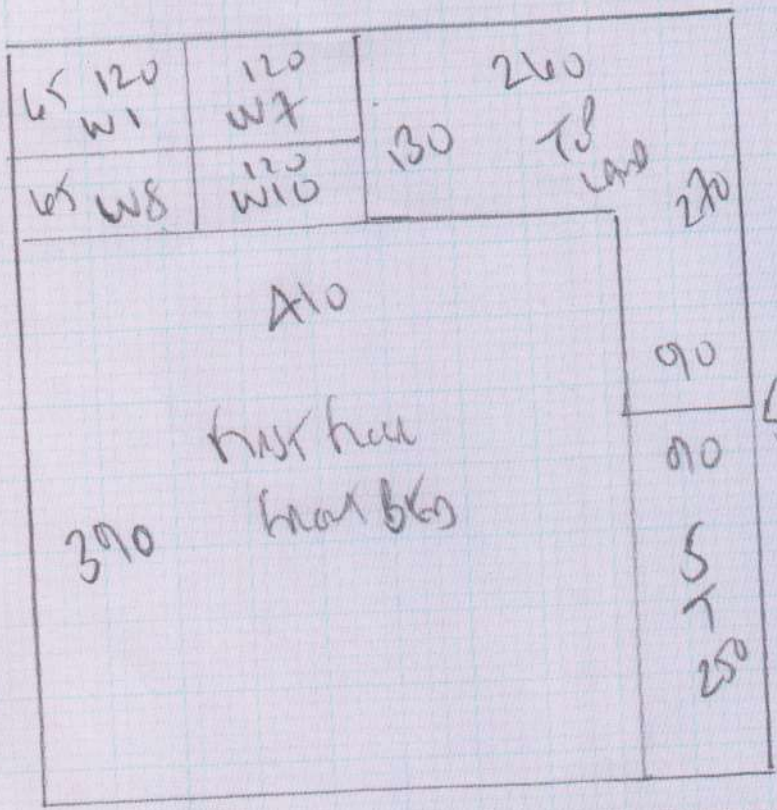 65 120
W1
120
W7
65 W8
120
W10
260
130
TO
LAND
270
90
410
FIRST FLOOR
FRONT BED
390
90
S
T
250